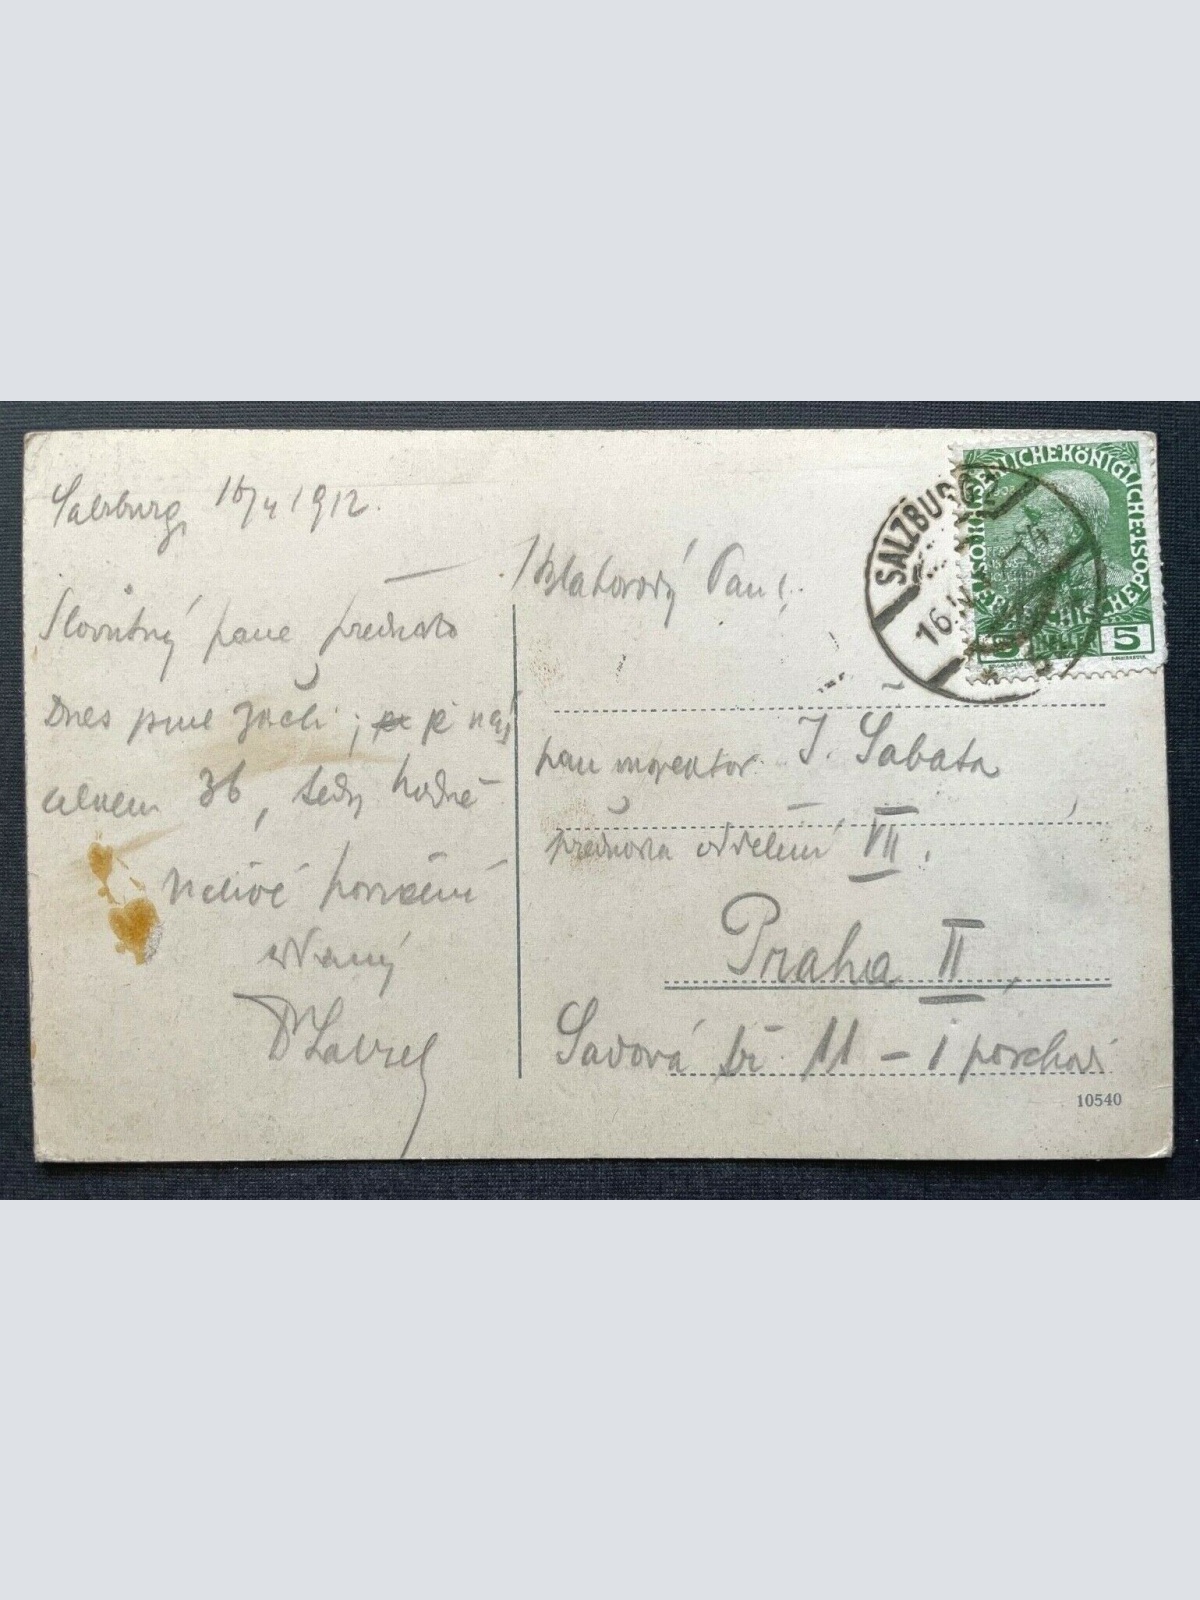 Salzburg, 16/4 1912.
Slovutný pane přednosto
Dnes jsme začli; je nás
celkem 36, tedy hodně
Uctivé poručení
oddaný
Blahorodý Pan
pan inspektor J. Šabata
přednosta oddělení VII.
Praha II,
Sadová tř. 11 - I poschodí
10540
SALZBURG
16.IV
KAISERLICHE KÖNIGLICHE
ÖSTERREICHISCHE POST
5 HELLER 5